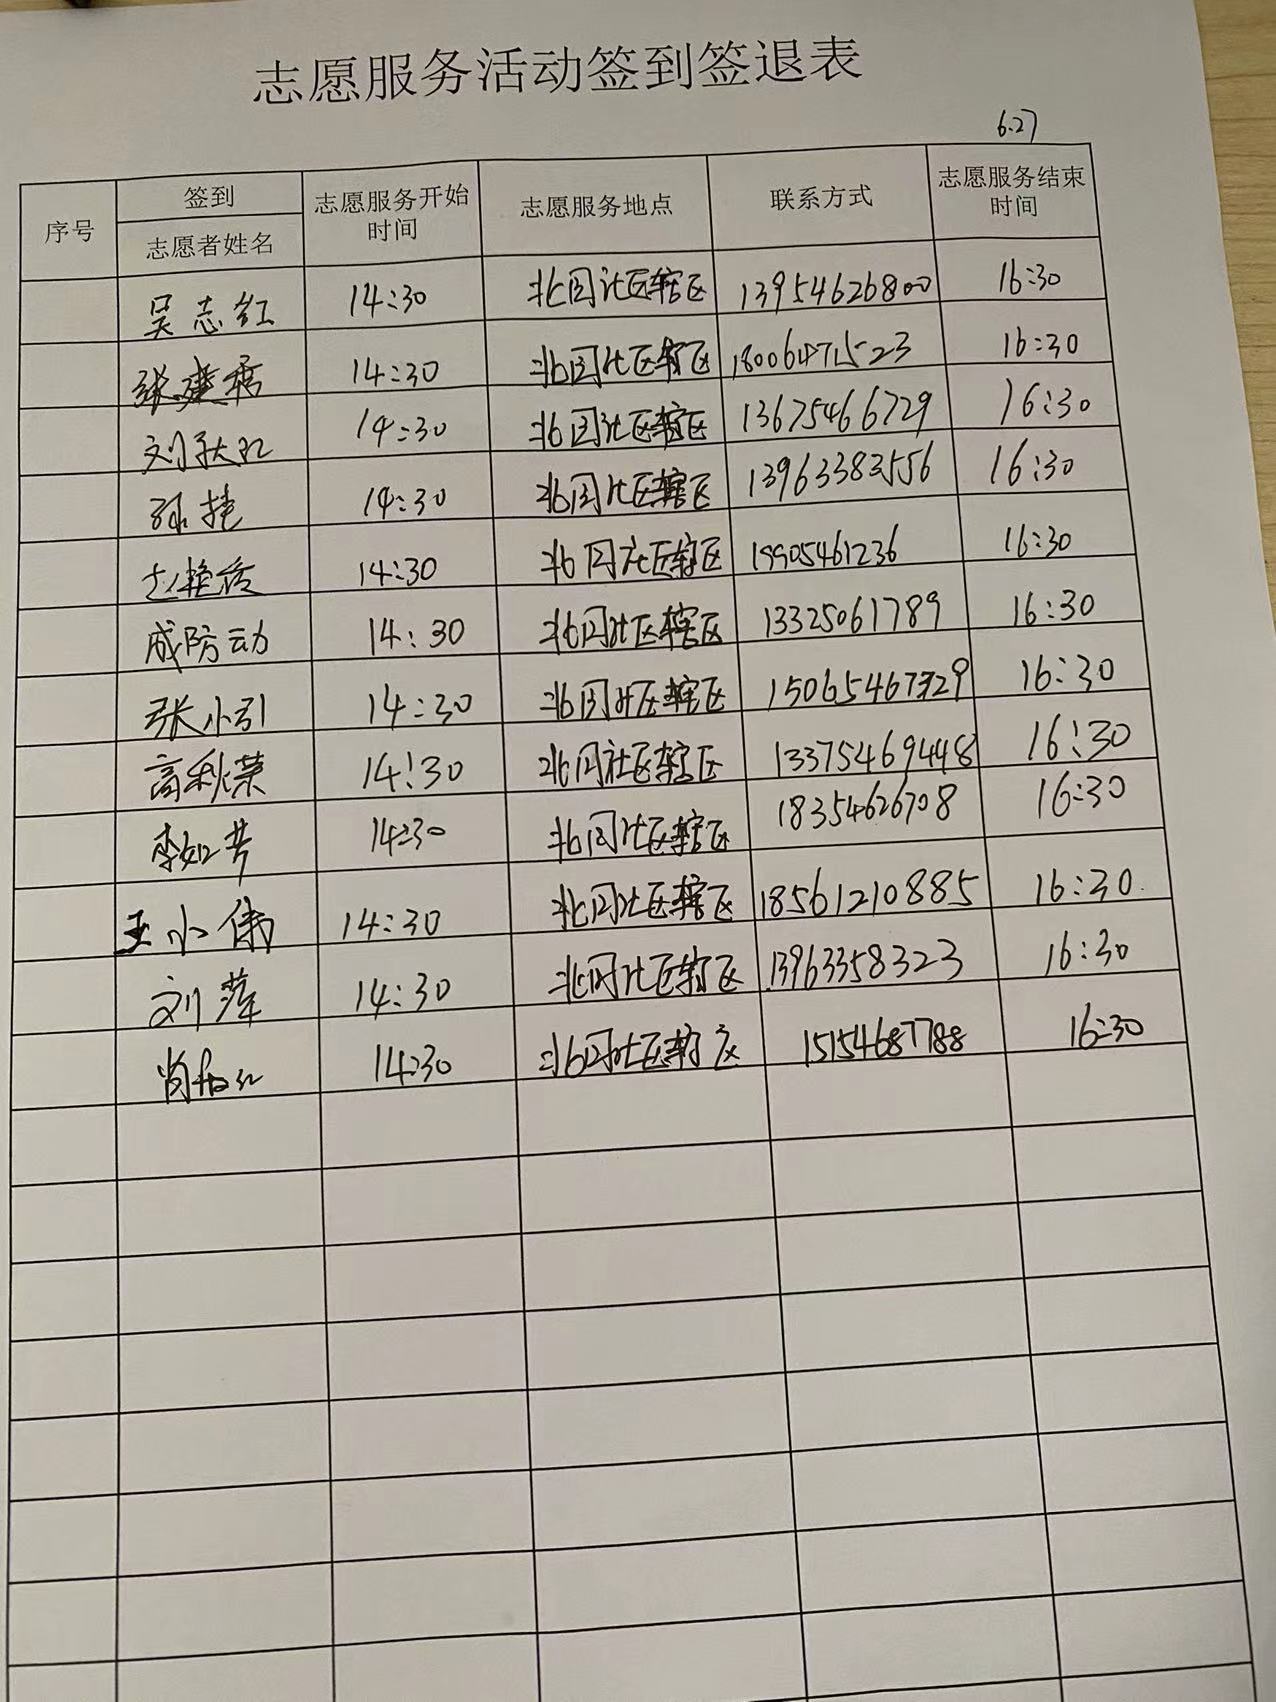 志愿服务活动签到签退表
6.27
序号 签到 志愿者姓名 志愿服务开始时间 志愿服务地点 联系方式 志愿服务结束时间
吴志红 14:30 北园社区辖区 13954626800 16:30
14:30 北园社区辖区 18006471523 16:30
14:30 北园社区辖区 13675466729 16:30
孙桂 14:30 北园社区辖区 13963383556 16:30
14:30 北园社区辖区 19905461236 16:30
成防动 14:30 北园社区辖区 13325061789 16:30
张小引 14:30 北园社区辖区 15065467329 16:30
高秋荣 14:30 北园社区辖区 13375469448 16:30
李如芳 14:30 北园社区辖区 18354626708 16:30
王小伟 14:30 北园社区辖区 18561210885 16:30
刘萍 14:30 北园社区辖区 13963358323 16:30
14:30 北园社区辖区 15154687788 16:30